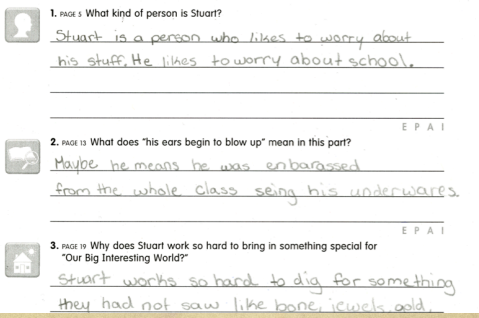 1. PAGE 5 What kind of person is Stuart?
Stuart is a person who likes to worry about
his stuff. He likes to worry about school.
E P A I
2. PAGE 13 What does "his ears begin to blow up" mean in this part?
Maybe he means he was enbarassed
from the whole class seing his underwares
E P A I
3. PAGE 19 Why does Stuart work so hard to bring in something special for
"Our Big Interesting World?"
Stuart works so hard to dig for something
they had not saw like bone, jewels, gold,